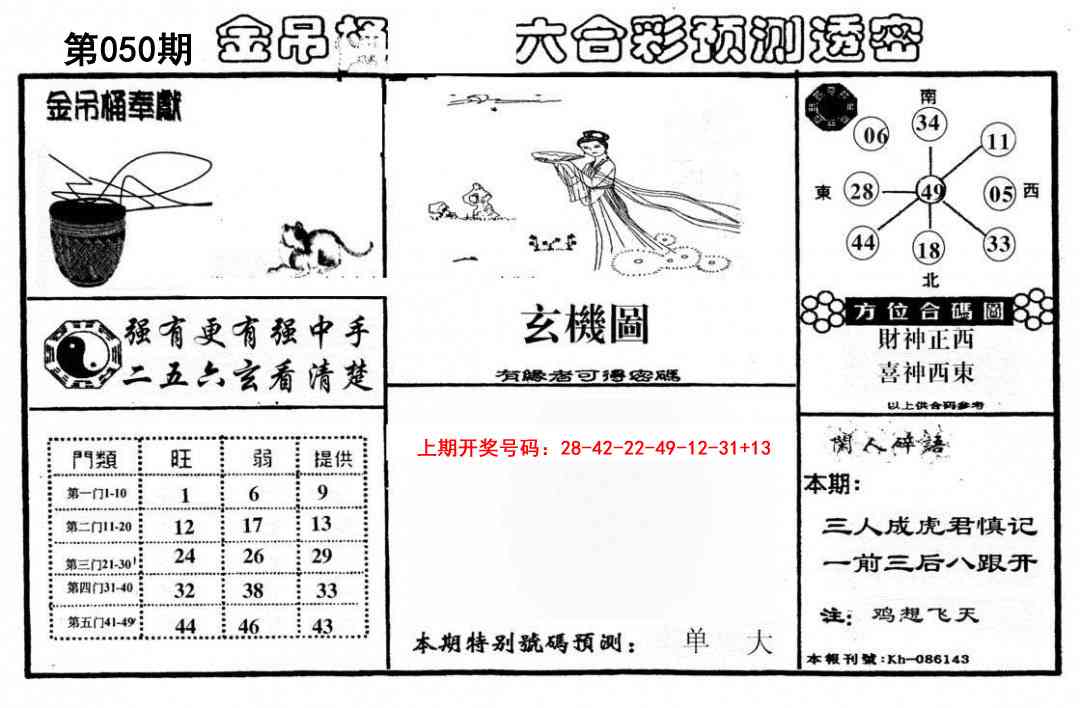 第050期 金吊桶 六合彩预测透密
金吊桶奉獻
强有更有强中手
二五六玄看清楚
門類 旺 弱 提供
第一门1-10 1 6 9
第二门11-20 12 17 13
第三门21-30 24 26 29
第四门31-40 32 38 33
第五门41-49 44 46 43
玄機圖
有緣者可得密碼
上期开奖号码：28-42-22-49-12-31+13
本期特别號碼預測： 单 大
南
06 34 11
東 28 49 05 西
44 18 33
北
方位合碼圖
財神正西
喜神西東
以上供合码参考
閑人碎語
本期：
三人成虎君慎记
一前三后八跟开
注：鸡想飞天
本報刊號:Kh-086143